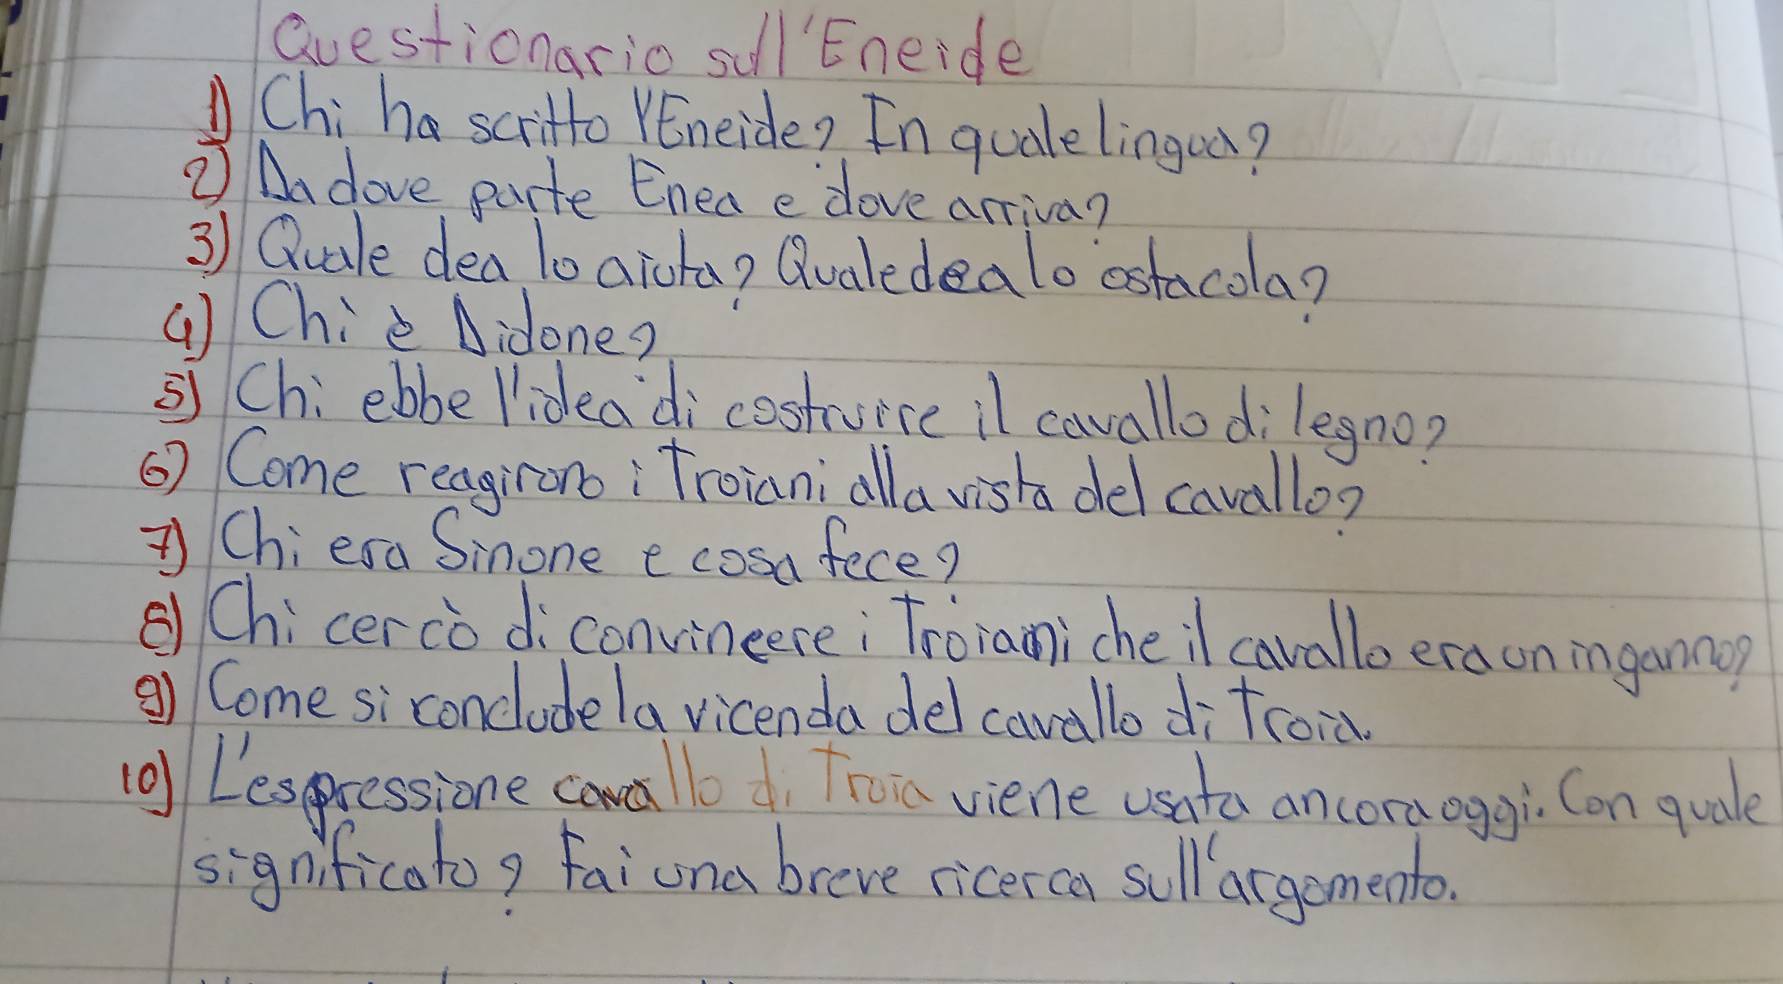 Questionario sull'Eneide
1) Chi ha scritto l'Eneide? In quale lingua?
2) Da dove parte Enea e dove arriva?
3) Quale dea lo aiuta? Quale dea lo ostacola?
4) Chi è Didone?
5) Chi ebbe l'idea di costruire il cavallo di legno?
6) Come reagirono i Troiani alla vista del cavallo?
7) Chi era Sinone e cosa fece?
8) Chi cercò di convincere i Troiani che il cavallo era un inganno?
9) Come si conclude la vicenda del cavallo di Troia.
10) L'espressione cavallo di Troia viene usata ancora oggi. Con quale
significato? Fai una breve ricerca sull'argomento.